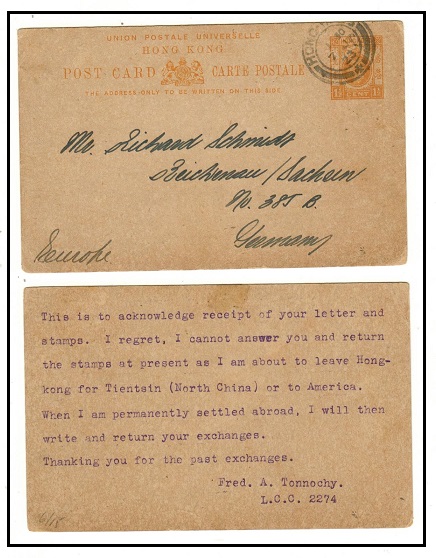 UNION POSTALE UNIVERSELLE
HONG KONG
POST CARD CARTE POSTALE
THE ADDRESS ONLY TO BE WRITTEN ON THIS SIDE
CENT
Mr. Richard Schmidt
Reichenau/Sachsen
No. 385 B.
Germany
Europe
This is to acknowledge receipt of your letter and
stamps. I regret, I cannot answer you and return
the stamps at present as I am about to leave Hong-
kong for Tientsin (North China) or to America.
When I am permanently settled abroad, I will then
write and return your exchanges.
Thanking you for the past exchanges.
Fred. A. Tonnochy.
L.C.C. 2274